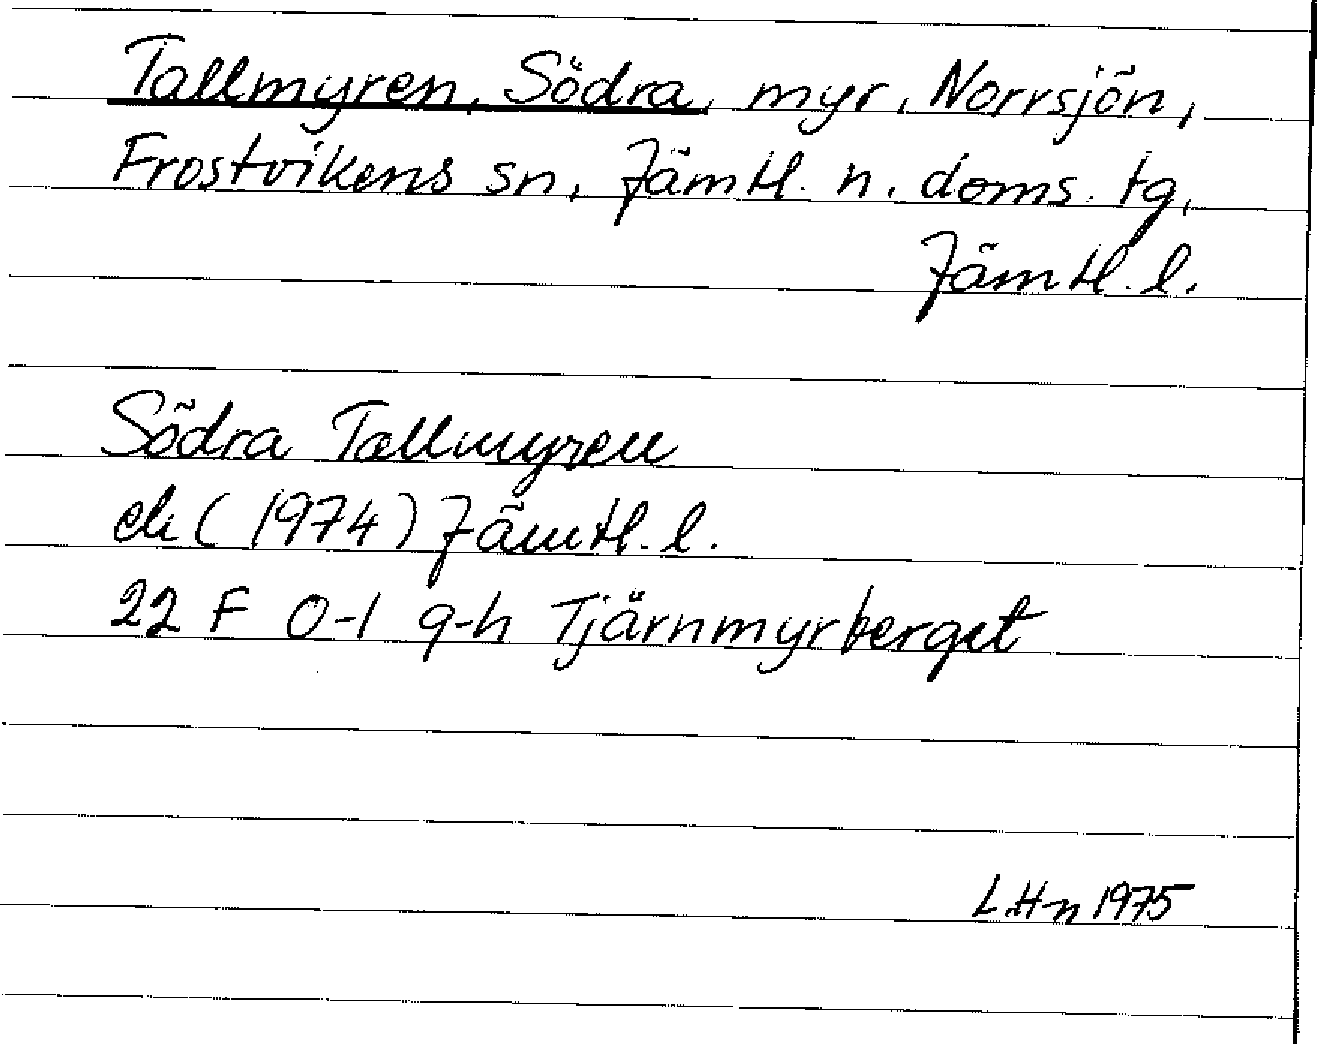 Tallmyren, Södra, myr, Norrsjön,
Frostvikens sn, Jämtl. n. doms. tg,
Jämtl. l.
Södra Tallmyren
ek (1974) Jämtl. l.
22 F 0-1 g-h Tjärnmyrberget
L.Hn 1975